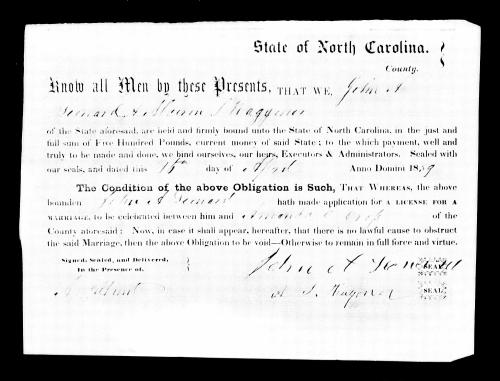 State of North Carolina.
County.
Know all Men by these Presents, THAT WE, John A
Leonard &
of the State aforesaid, are held and firmly bound unto the State of North Carolina, in the just and
full sum of Five Hundred Pounds, current money of said State; to the which payment, well and
truly to be made and done, we bind ourselves, our heirs, Executors & Administrators. Sealed with
our seals, and dated this day of April Anno Domini 1859
The Condition of the above Obligation is Such, THAT WHEREAS, the above
bounden John A Leonard hath made application for A LICENSE FOR A
MARRIAGE, to be celebrated between him and Amanda of the
County aforesaid: Now, in case it shall appear, hereafter, that there is no lawful cause to obstruct
the said Marriage, then the above Obligation to be void—Otherwise to remain in full force and virtue.
Signed, Sealed, and Delivered,
In the Presence of,
John A Leonard SEAL
SEAL